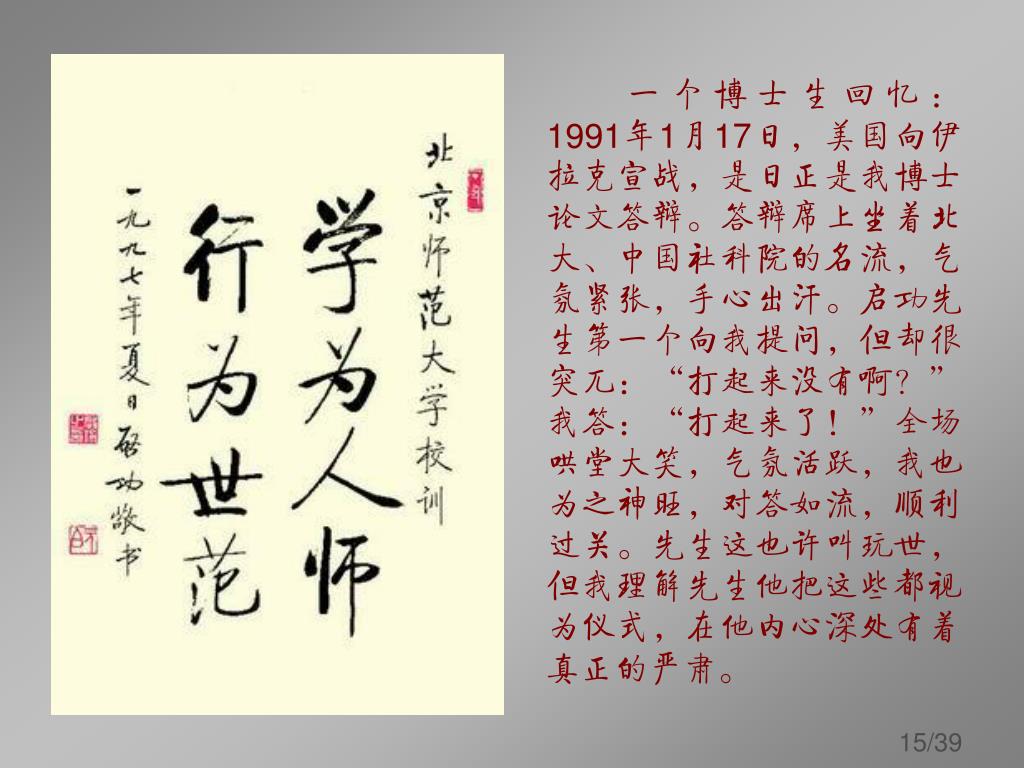 北京师范大学校训
学为人师
行为世范
一九九七年夏日启功敬书
一个博士生回忆：
1991年1月17日，美国向伊
拉克宣战，是日正是我博士
论文答辩。答辩席上坐着北
大、中国社科院的名流，气
氛紧张，手心出汗。启功先
生第一个向我提问，但却很
突兀：“打起来没有啊？”
我答：“打起来了！”全场
哄堂大笑，气氛活跃，我也
为之神旺，对答如流，顺利
过关。先生这也许叫玩世，
但我理解先生他把这些都视
为仪式，在他内心深处有着
真正的严肃。
15/39